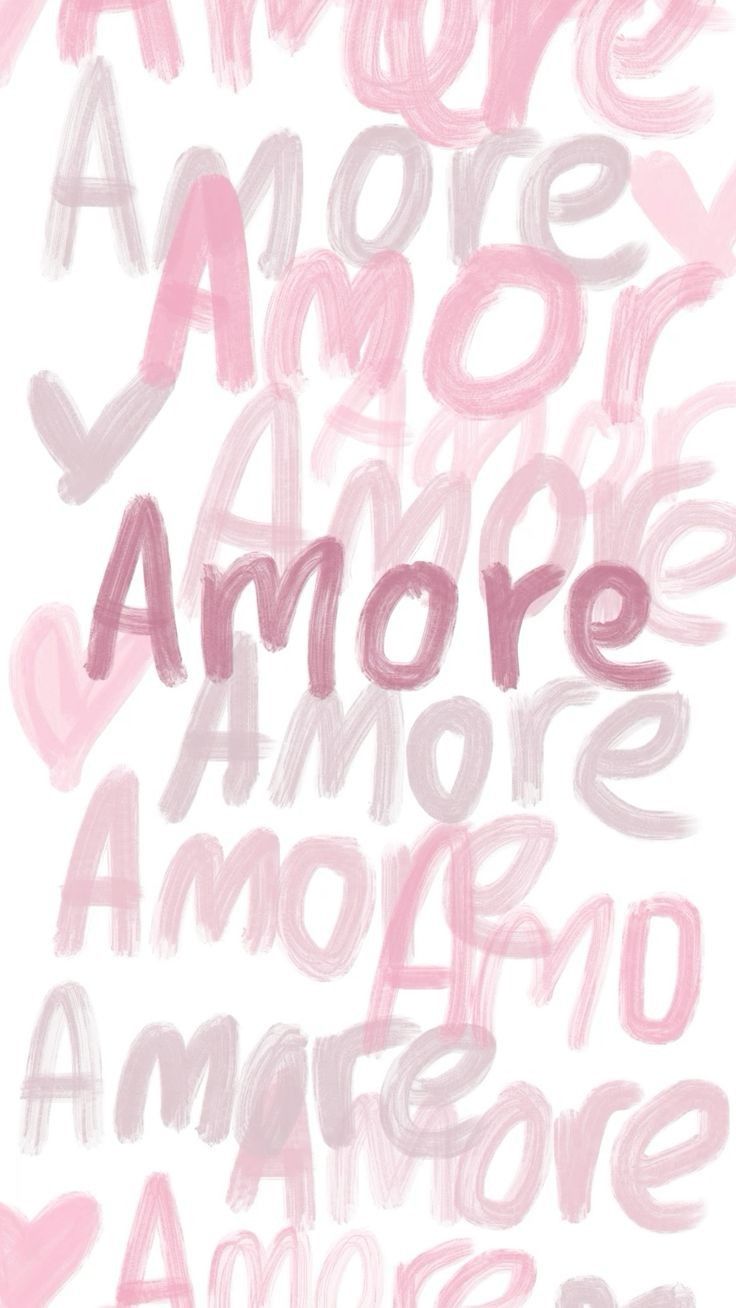 Amore
Amore
Amor
Amore
Amore
Amore
Amore
Amore
Amo
Amore
Amore
Amore